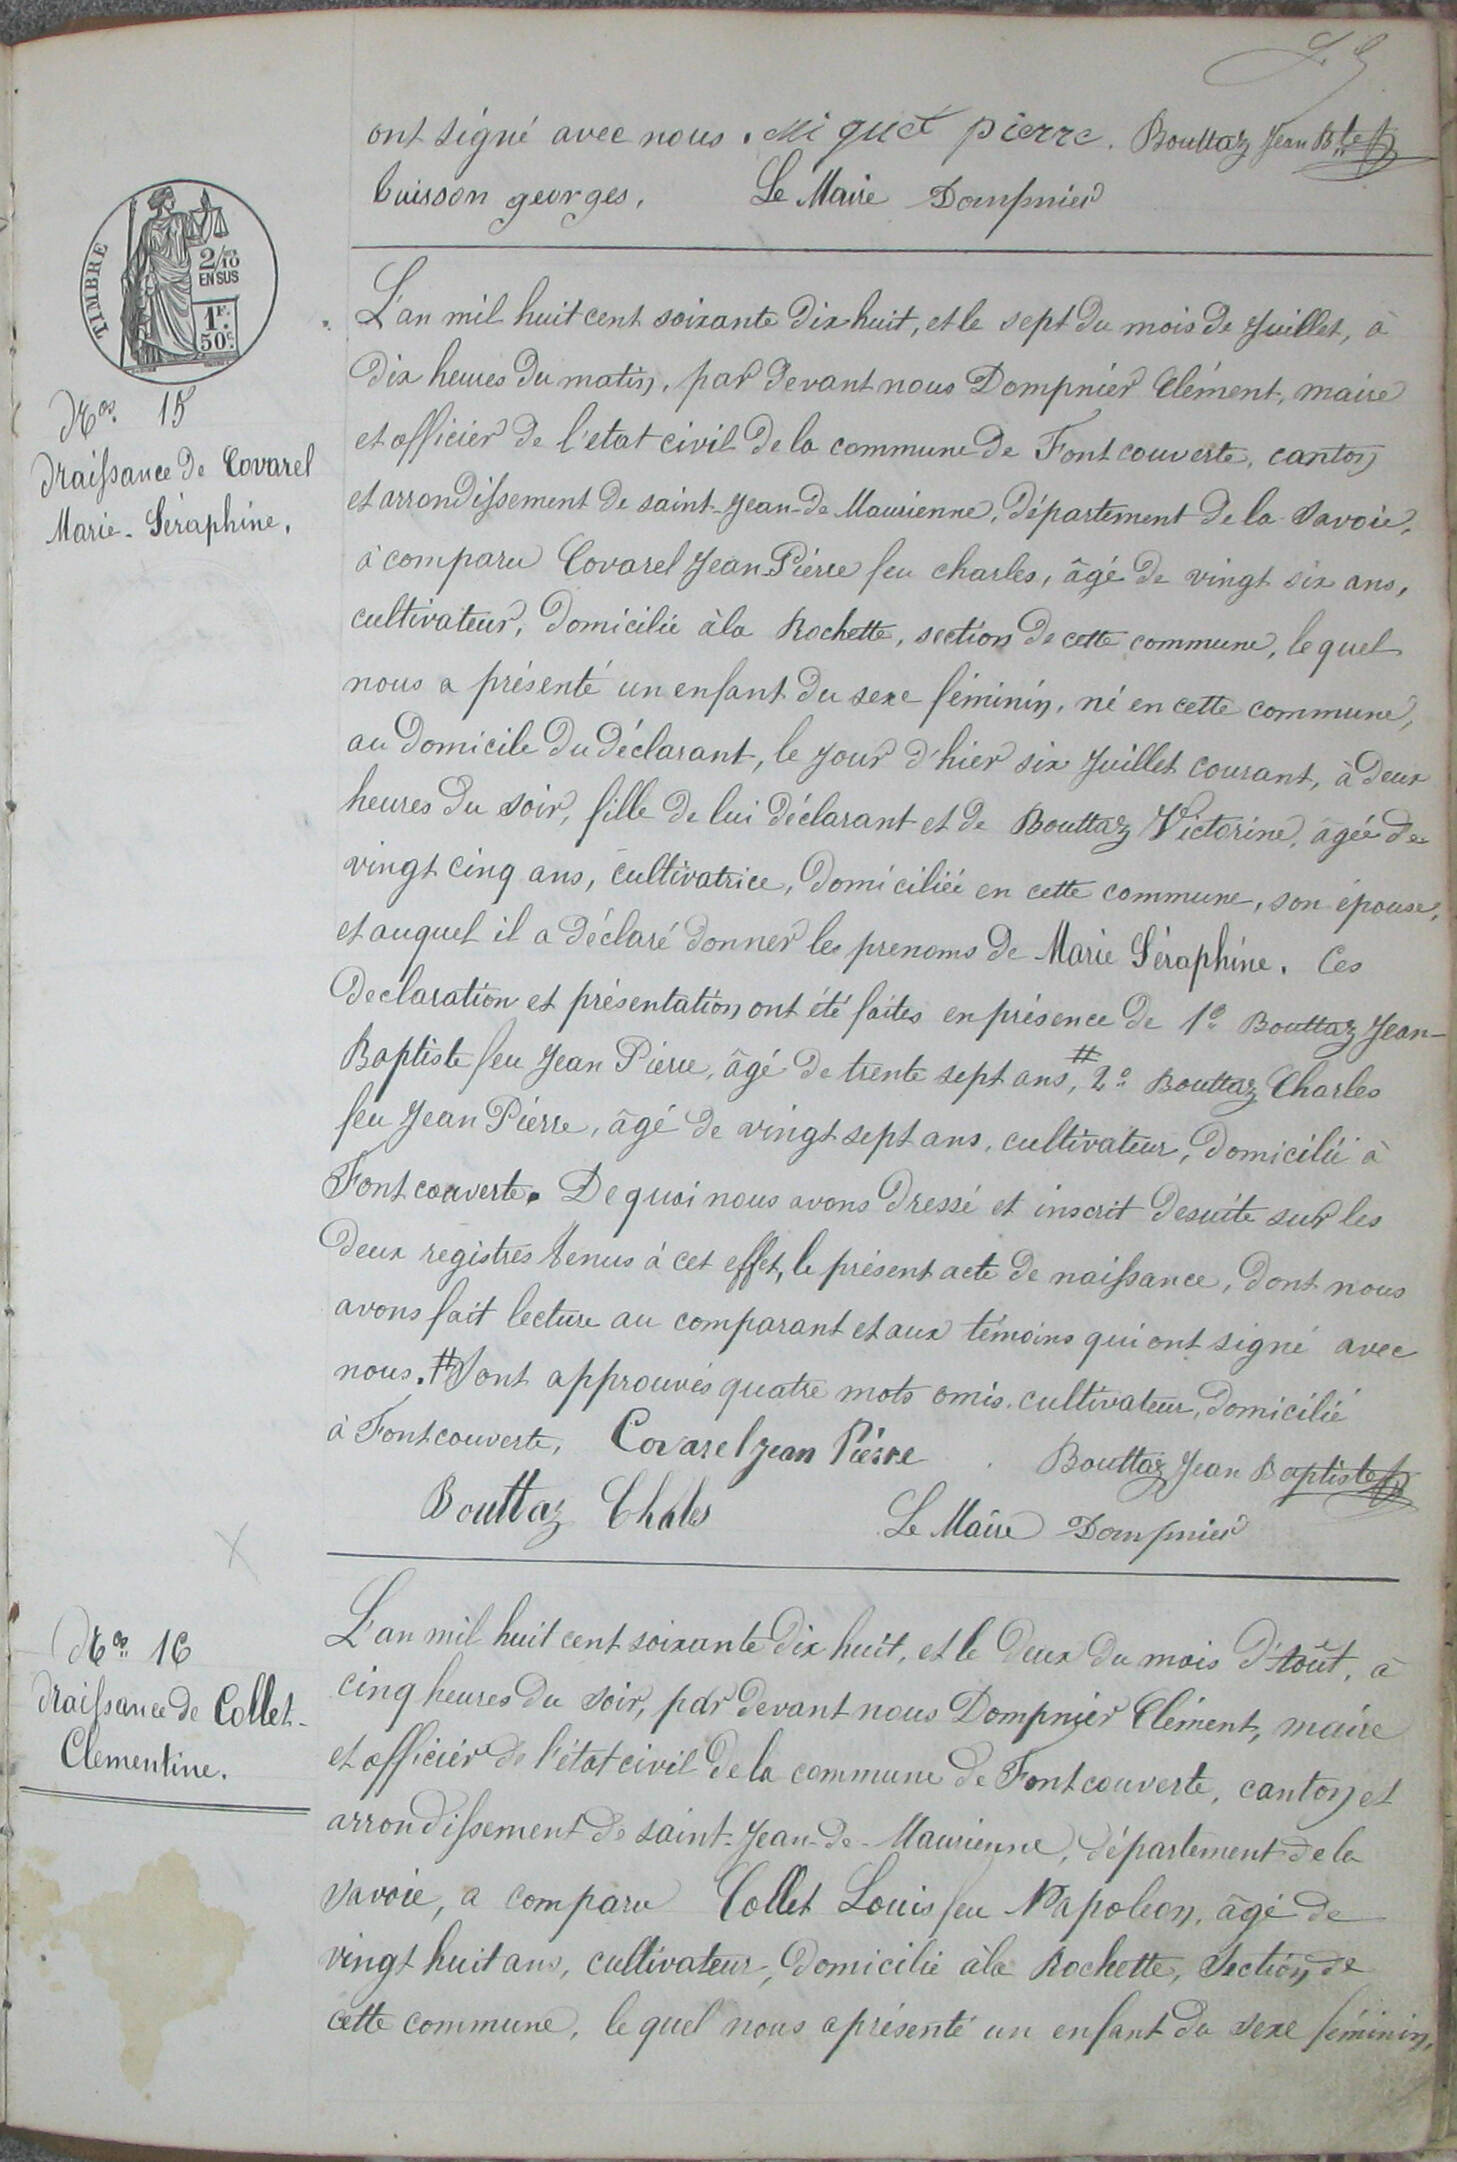 ont signé avec nous. Miquet pierre. Bouttaz Jean Bte
buisson georges, Le Maire Dompnier
TIMBRE
2/10
EN SUS
1F.
50c.
L'an mil huit cent soixante dix huit, et le sept du mois de Juillet, à
dix heures du matin, par devant nous Dompnier Clément, maire
et officier de l'etat civil de la commune de Fontcouverte, canton
et arrondissement de saint-Jean-de Maurienne, département de la Savoie,
à comparu Covarel Jean-Pierre feu charles, âgé de vingt six ans,
cultivateur, domicilié à la Rochette, section de cette commune, le quel
nous a présenté un enfant du sexe féminin, né en cette commune,
au domicile du déclarant, le jour d'hier six Juillet courant, à deux
heures du soir, fille de lui déclarant et de Bouttaz Victorine, âgée de
vingt cinq ans, cultivatrice, domiciliée en cette commune, son épouse,
et auquel il a déclaré donner les prenoms de Marie Séraphine. Ces
declaration et présentation ont été faites en présence de 1o Bouttaz Jean-
Baptiste feu Jean Pierre, âgé de trente sept ans, # 2o Bouttaz Charles
feu Jean Pierre, âgé de vingt sept ans, cultivateur, domicilié à
Fontcouverte. De quoi nous avons dressé et inscrit desuite sur les
deux registres tenus à cet effet, le présent acte de naissance, dont nous
avons fait lecture au comparant et aux témoins qui ont signé avec
nous. # Sont approuvés quatre mots omis. cultivateur, domicilié
à Fontcouverte, Covarel jean Pierre Bouttaz Jean Baptiste
Bouttaz Chales Le Maire Dompnier
Nos 15
Naissance de Covarel
Marie-Séraphine.
L'an mil huit cent soixante dix huit, et le deux du mois d'Août, à
cinq heures du soir, par devant nous Dompnier Clément, maire
et officier de l'état civil de la commune de Fontcouverte, canton et
arrondissement de saint-Jean-de-Maurienne, département de la
Savoie, a comparu Collet Louis feu Napoleon, âgé de
vingt huit ans, cultivateur, domicilié à la Rochette, Section de
cette commune, le quel nous a présenté un enfant du sexe féminin,
Nos 16
Naissance de Collet-
Clementine.